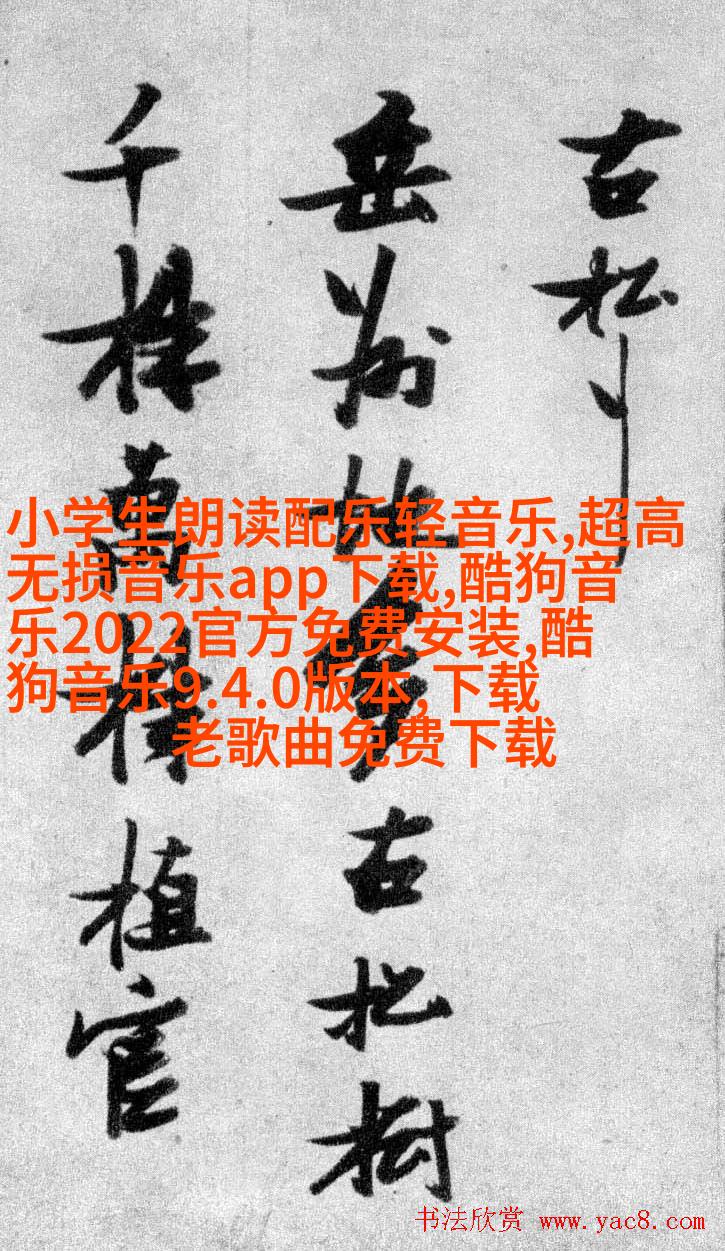 古松
岳州地多古松樹
千株萬株植官
小学生朗读配乐轻音乐,超高
无损音乐app下载,酷狗音
乐2022官方免费安装,酷
狗音乐9.4.0版本,下载
老歌曲免费下载
书法欣赏 www.yac8.com